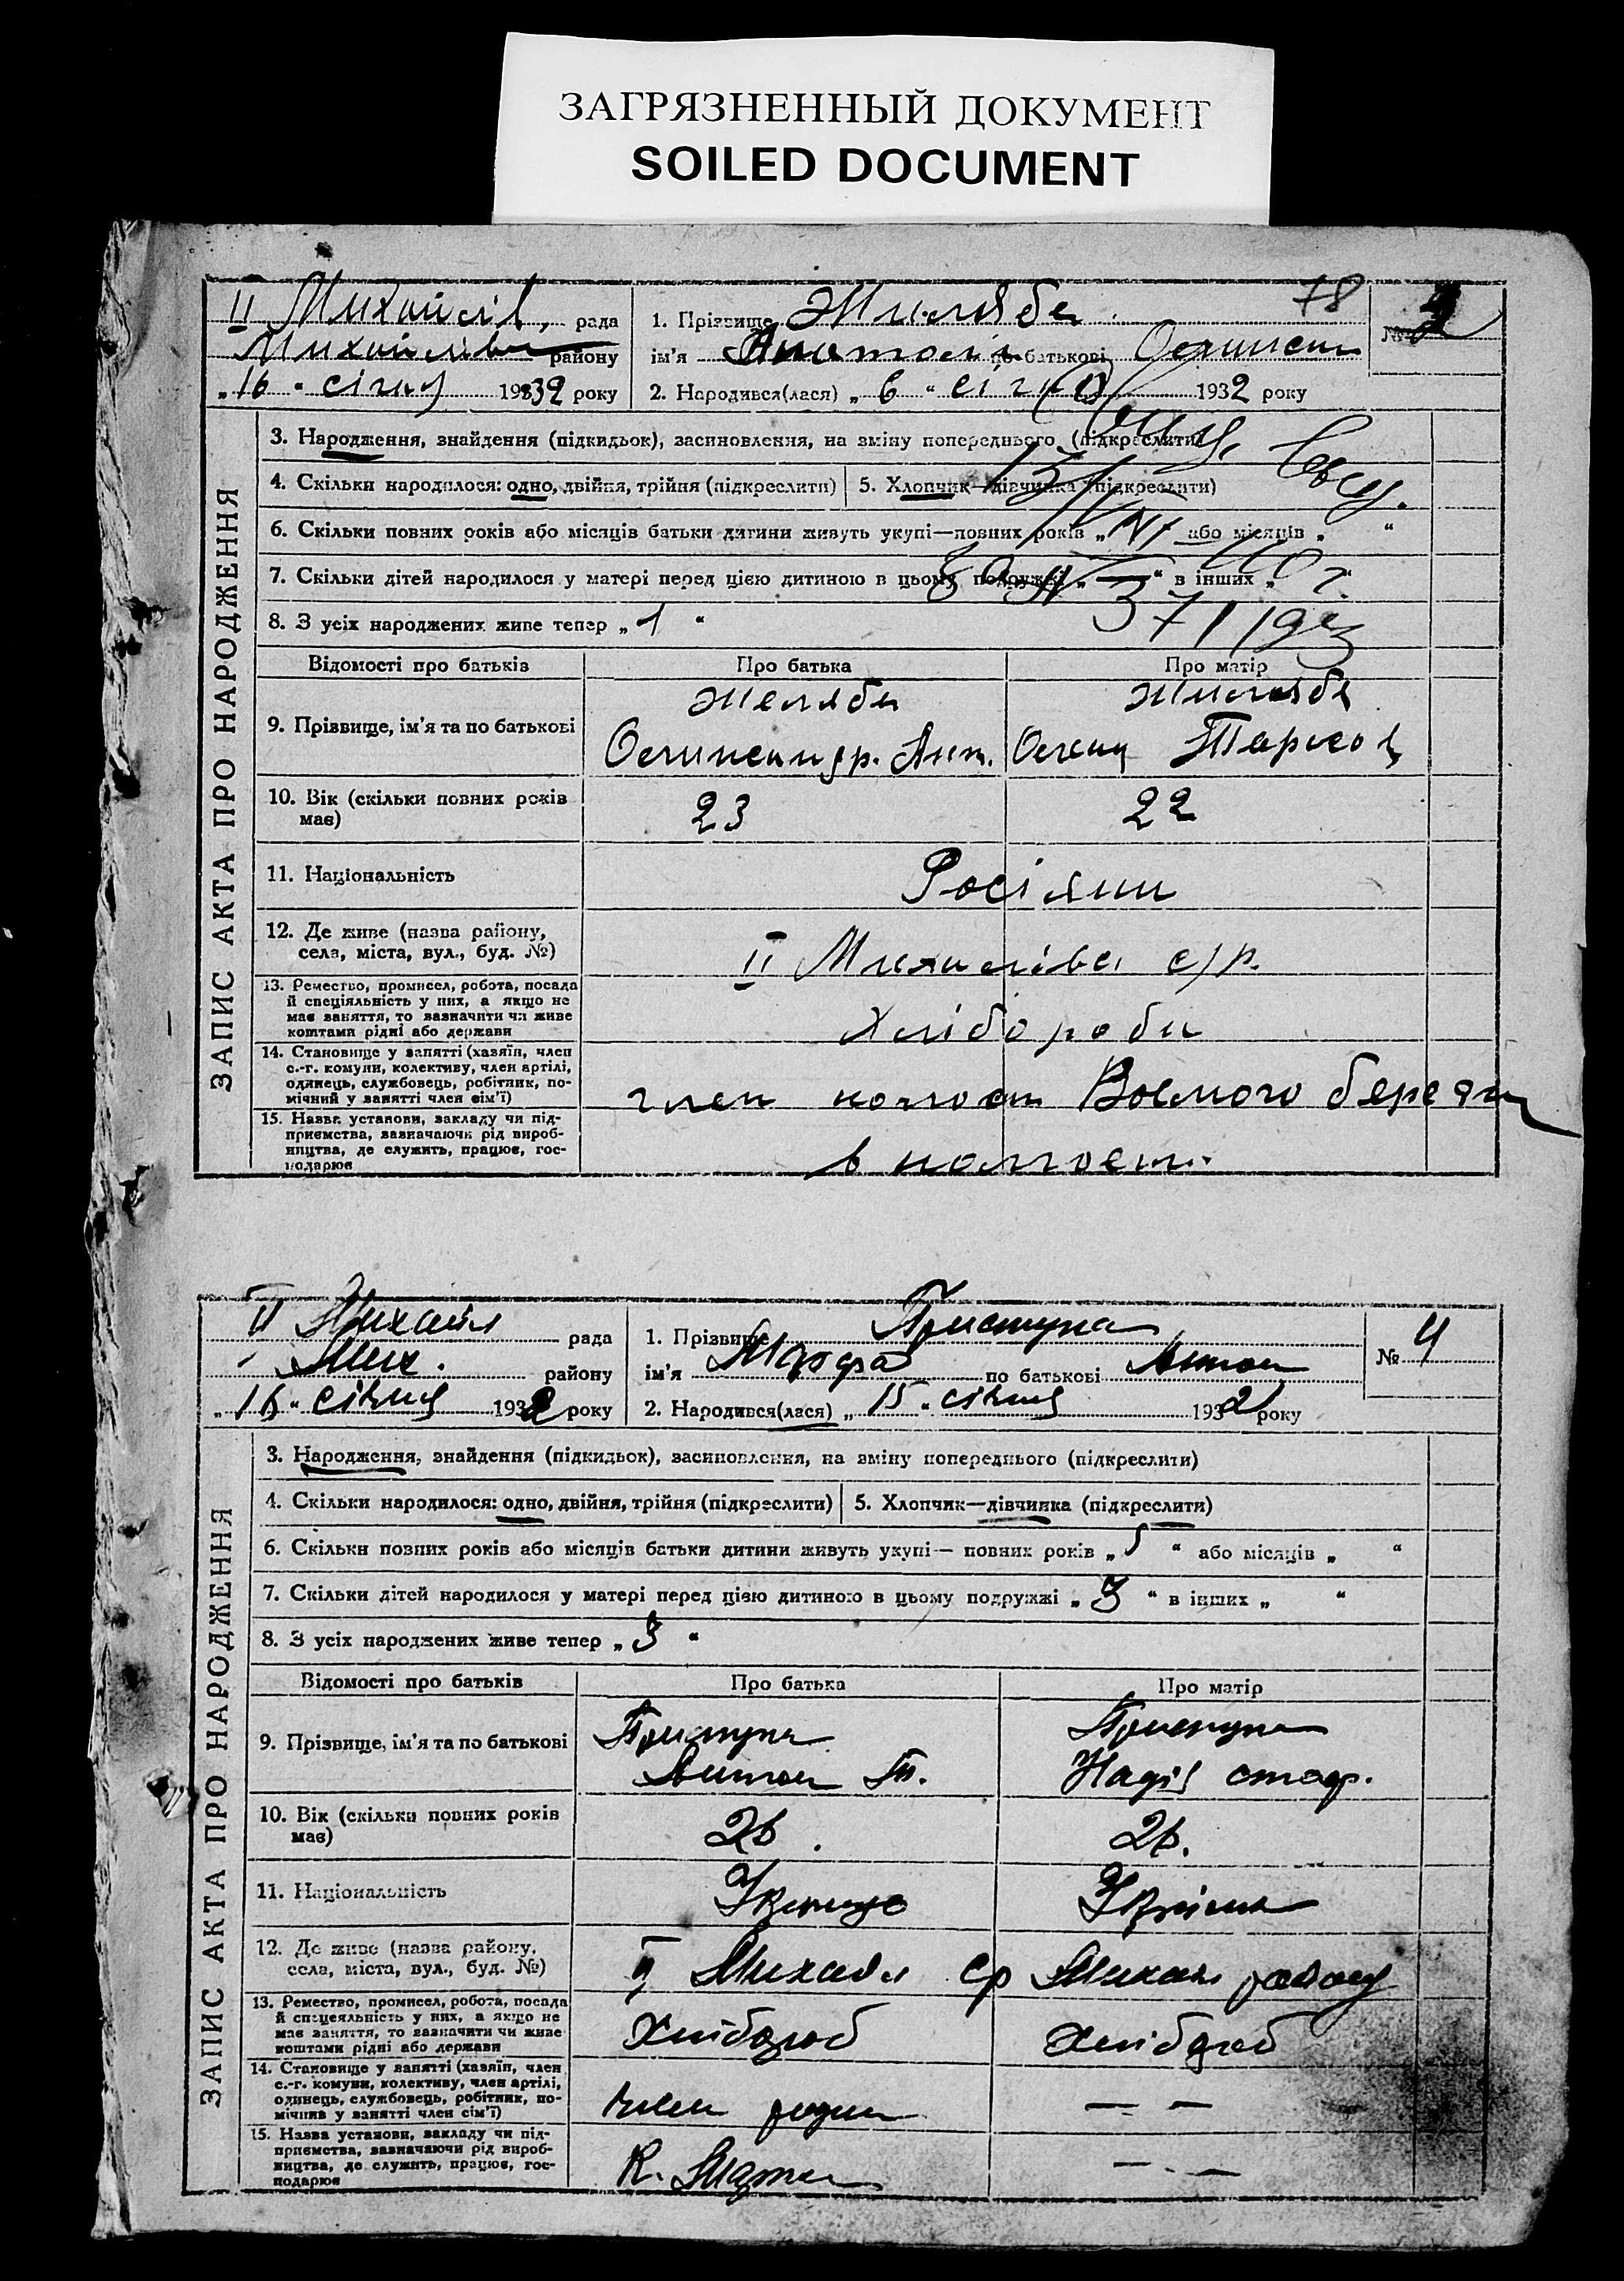 ЗАГРЯЗНЕННЫЙ ДОКУМЕНТ
SOILED DOCUMENT
ЗАПИС АКТА ПРО НАРОДЖЕННЯ
II Михайлів. рада
Михайлівськ району
„16“ січня 1932 року
1. Прізвище Жиляба 78
ім'я Анатолій по батькові
2. Народився(лася) „6“ січня 1932 року
№
3. Народження, знайдення (підкидьок), засиновлення, на зміну попереднього (підкреслити)
4. Скільки народилося: одно, двійня, трійня (підкреслити)
5. Хлопчик—дівчинка (підкреслити)
6. Скільки повних років або місяців батьки дитини живуть укупі—повних років „ або місяців „ “
7. Скільки дітей народилося у матері перед цією дитиною в цьому подружжі „—“ в інших „
8. З усіх народжених живе тепер „1“
Відомості про батьків Про батька Про матір
9. Прізвище, ім'я та по батькові
Жиляба
Жиляба
10. Вік (скільки повних років має)
23 22
11. Національність
Росіяни
12. Де живе (назва району, села, міста, вул., буд. №)
II Михайлівка с/р.
13. Ремество, промисел, робота, посада й спеціяльність у них, а якщо не має заняття, то зазначити чи живе коштами рідні або держави
Хлібороби
14. Становище у занятті (хазяїн, член с.-г. комуни, колективу, член артілі, одинець, службовець, робітник, помічний у занятті член сім'ї)
член колгосп Восьмого березня
15. Назва установи, закладу чи підприємства, зазначаючи рід виробництва, де служить, працює, господарює
в колгоспі
ЗАПИС АКТА ПРО НАРОДЖЕННЯ
II Михайл рада
Мих. району
„16“ січня 1932 року
1. Прізвище Приступа
ім'я Марфа по батькові Антон
2. Народився(лася) „15“ січня 1932 року
№ 4
3. Народження, знайдення (підкидьок), засиновлення, на зміну попереднього (підкреслити)
4. Скільки народилося: одно, двійня, трійня (підкреслити)
5. Хлопчик—дівчинка (підкреслити)
6. Скільки повних років або місяців батьки дитини живуть укупі— повних років „5“ або місяців „ “
7. Скільки дітей народилося у матері перед цією дитиною в цьому подружжі „3“ в інших „ “
8. З усіх народжених живе тепер „3“
Відомості про батьків Про батька Про матір
9. Прізвище, ім'я та по батькові
Приступа Приступа
Антон П. Надія
10. Вік (скільки повних років має)
26. 26.
11. Національність
12. Де живе (назва району, села, міста, вул., буд. №)
II Михайл ср Михайл району
13. Ремество, промисел, робота, посада й спецеяльність у них, а якщо не має заняття, то зазначити чи живе коштами рідні або держави
Хлібороб Хлібороб
14. Становище у занятті (хазяїн, член с.-г. комуни, колективу, член артілі, одинець, службовець, робітник, помічний у занятті член сім'ї)
член — —
15. Назва установи, закладу чи підприємства, зазначаючи рід виробництва, де служить, працює, господарює
— —